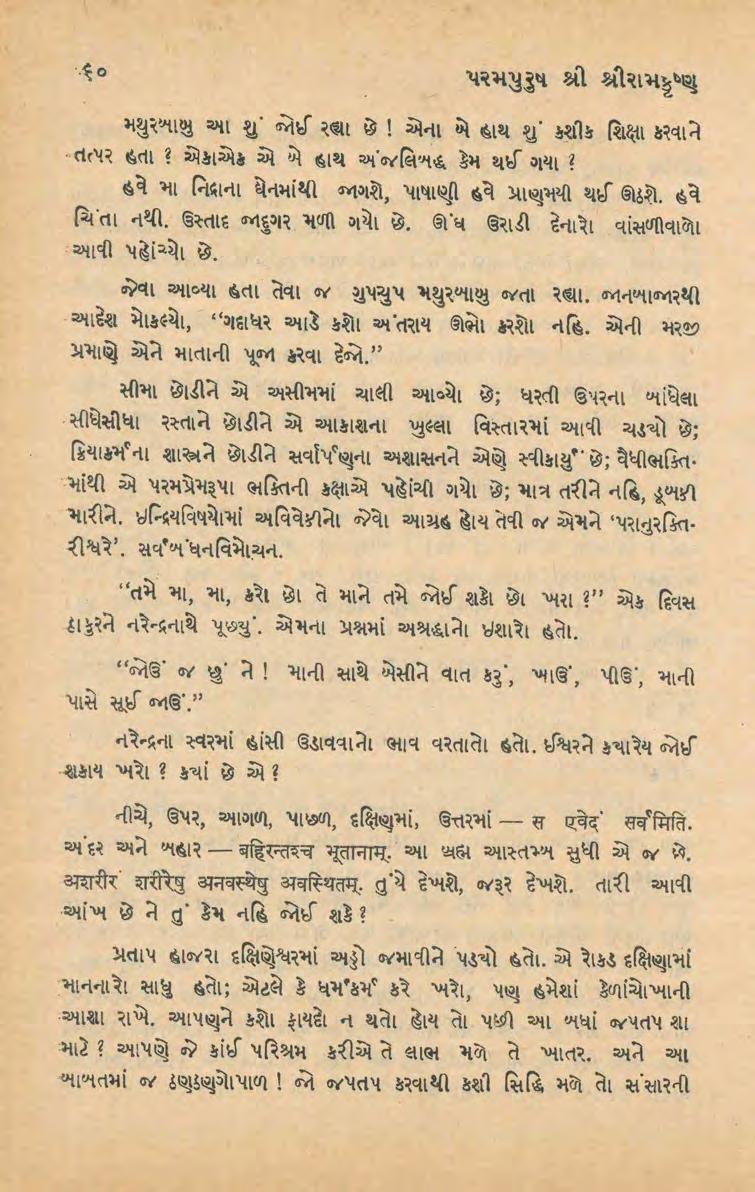 ૬૦
પરમપુરુષ શ્રી શ્રીરામકૃષ્ણ
મથુરબાબુ આ શું જોઈ રહ્યા છે ! એના બે હાથ શું કશીક શિક્ષા કરવાને
તત્પર હતા ? એકાએક એ બે હાથ અંજલિબદ્ધ કેમ થઈ ગયા ?
હવે મા નિદ્રાના ઘેનમાંથી જાગશે, પાષાણી હવે પ્રાણમયી થઈ ઊઠશે. હવે
ચિંતા નથી. ઉસ્તાદ જાદુગર મળી ગયો છે. ઊંઘ ઉરાડી દેનારો વાંસળીવાળો
આવી પહોંચ્યો છે.
જેવા આવ્યા હતા તેવા જ ગુપચુપ મથુરબાબુ જતા રહ્યા. જાનબાજારથી
આદેશ મોકલ્યો, “ગદાધર આડે કશો અંતરાય ઊભો કરશો નહિ. એની મરજી
પ્રમાણે એને માતાની પૂજા કરવા દેજો.”
સીમા છોડીને એ અસીમમાં ચાલી આવ્યો છે; ધરતી ઉપરના બાંધેલા
સીધેસીધા રસ્તાને છોડીને એ આકાશના ખુલ્લા વિસ્તારમાં આવી ચડ્યો છે;
ક્રિયાકર્મના શાસ્ત્રને છોડીને સર્વાર્પણના અશાસનને એણે સ્વીકાર્યું છે; વૈધીભક્તિ-
માંથી એ પરમપ્રેમરૂપા ભક્તિની કક્ષાએ પહોંચી ગયો છે; માત્ર તરીને નહિ, ડૂબકી
મારીને. ઇન્દ્રિયવિષયોમાં અવિવેકીનો જેવો આગ્રહ હોય તેવી જ એમને ‘પરાનુરક્તિ-
રીશ્વરે’. સર્વબંધનવિમોચન.
“તમે મા, મા, કરો છો તે માને તમે જોઈ શકો છો ખરા ?” એક દિવસ
ઠાકુરને નરેન્દ્રનાથે પૂછ્યું. એમના પ્રશ્નમાં અશ્રદ્ધાનો ઇશારો હતો.
“જોઉં જ છું ને ! માની સાથે બેસીને વાત કરું, ખાઉં, પીઉં, માની
પાસે સૂઈ જાઉં.”
નરેન્દ્રના સ્વરમાં હાંસી ઉડાવવાનો ભાવ વરતાતો હતો. ઈશ્વરને કયારેય જોઈ
શકાય ખરો ? કયાં છે એ ?
નીચે, ઉપર, આગળ, પાછળ, દક્ષિણમાં, ઉત્તરમાં — स एवेदं सर्वमिति.
અંદર અને બહાર — बहिरन्तश्च भूतानाम्. આ બ્રહ્મ આસ્તમ્બ સુધી એ જ છે.
अशरीरं शरीरेषु अनवस्थेषु अवस्थितम्. તુંયે દેખશે, જરૂર દેખશે. તારી આવી
આંખ છે ને તું કેમ નહિ જોઈ શકે ?
પ્રતાપ હાજરા દક્ષિણેશ્વરમાં અડ્ડો જમાવીને પડ્યો હતો. એ રોકડ દક્ષિણામાં
માનનારો સાધુ હતો; એટલે કે ધર્મકર્મ કરે ખરો, પણ હમેશાં કેળાંચોખાની
આશા રાખે. આપણને કશો ફાયદો ન થતો હોય તો પછી આ બધાં જપતપ શા
માટે ? આપણે જે કાંઈ પરિશ્રમ કરીએ તે લાભ મળે તે ખાતર. અને આ
બાબતમાં જ ઠણઠણગોપાળ ! જો જપતપ કરવાથી કશી સિદ્ધિ મળે તો સંસારની